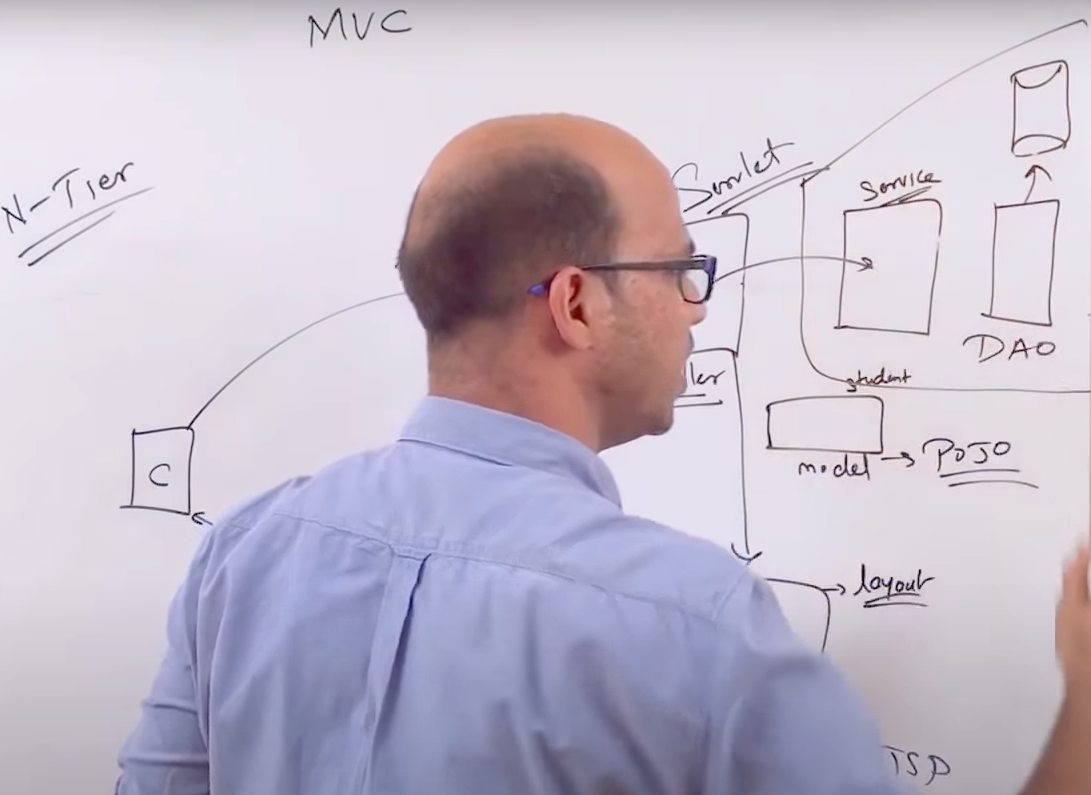 MVC
N-Tier
Servlet
Service
DAO
student
C
model → POJO
layout
JSP